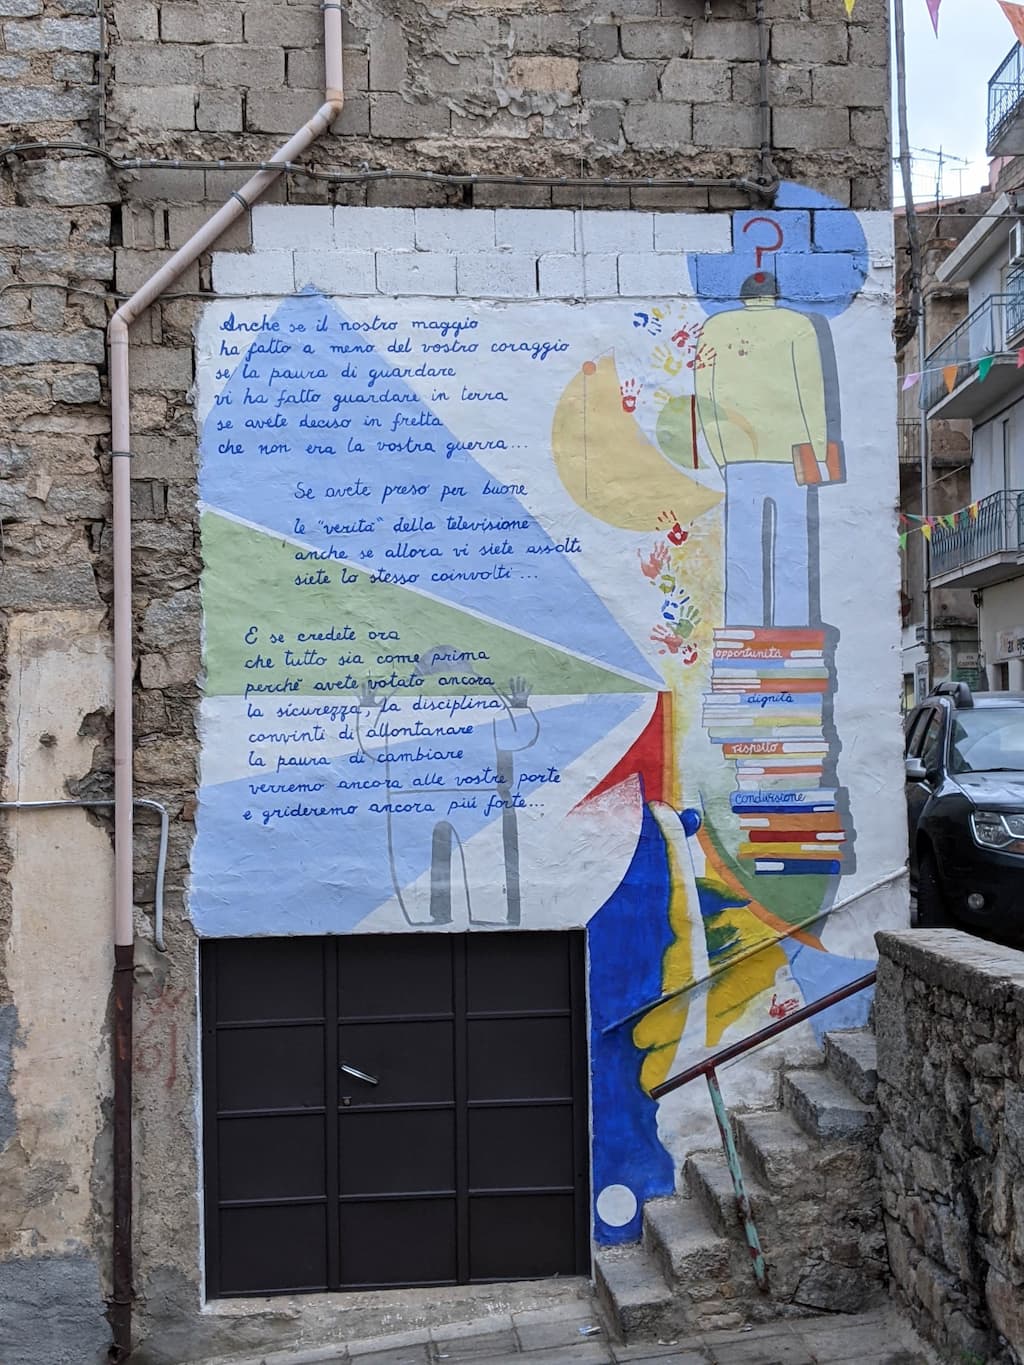 Anche se il nostro maggio
ha fatto a meno del vostro coraggio
se la paura di guardare
vi ha fatto guardare in terra
se avete deciso in fretta
che non era la vostra guerra...
Se avete preso per buone
le "verità" della televisione
anche se allora vi siete assolti
siete lo stesso coinvolti...
E se credete ora
che tutto sia come prima
perché avete votato ancora
la sicurezza, la disciplina
convinti di allontanare
la paura di cambiare
verremo ancora alle vostre porte
e grideremo ancora più forte...
?
opportunità
dignità
rispetto
condivisione